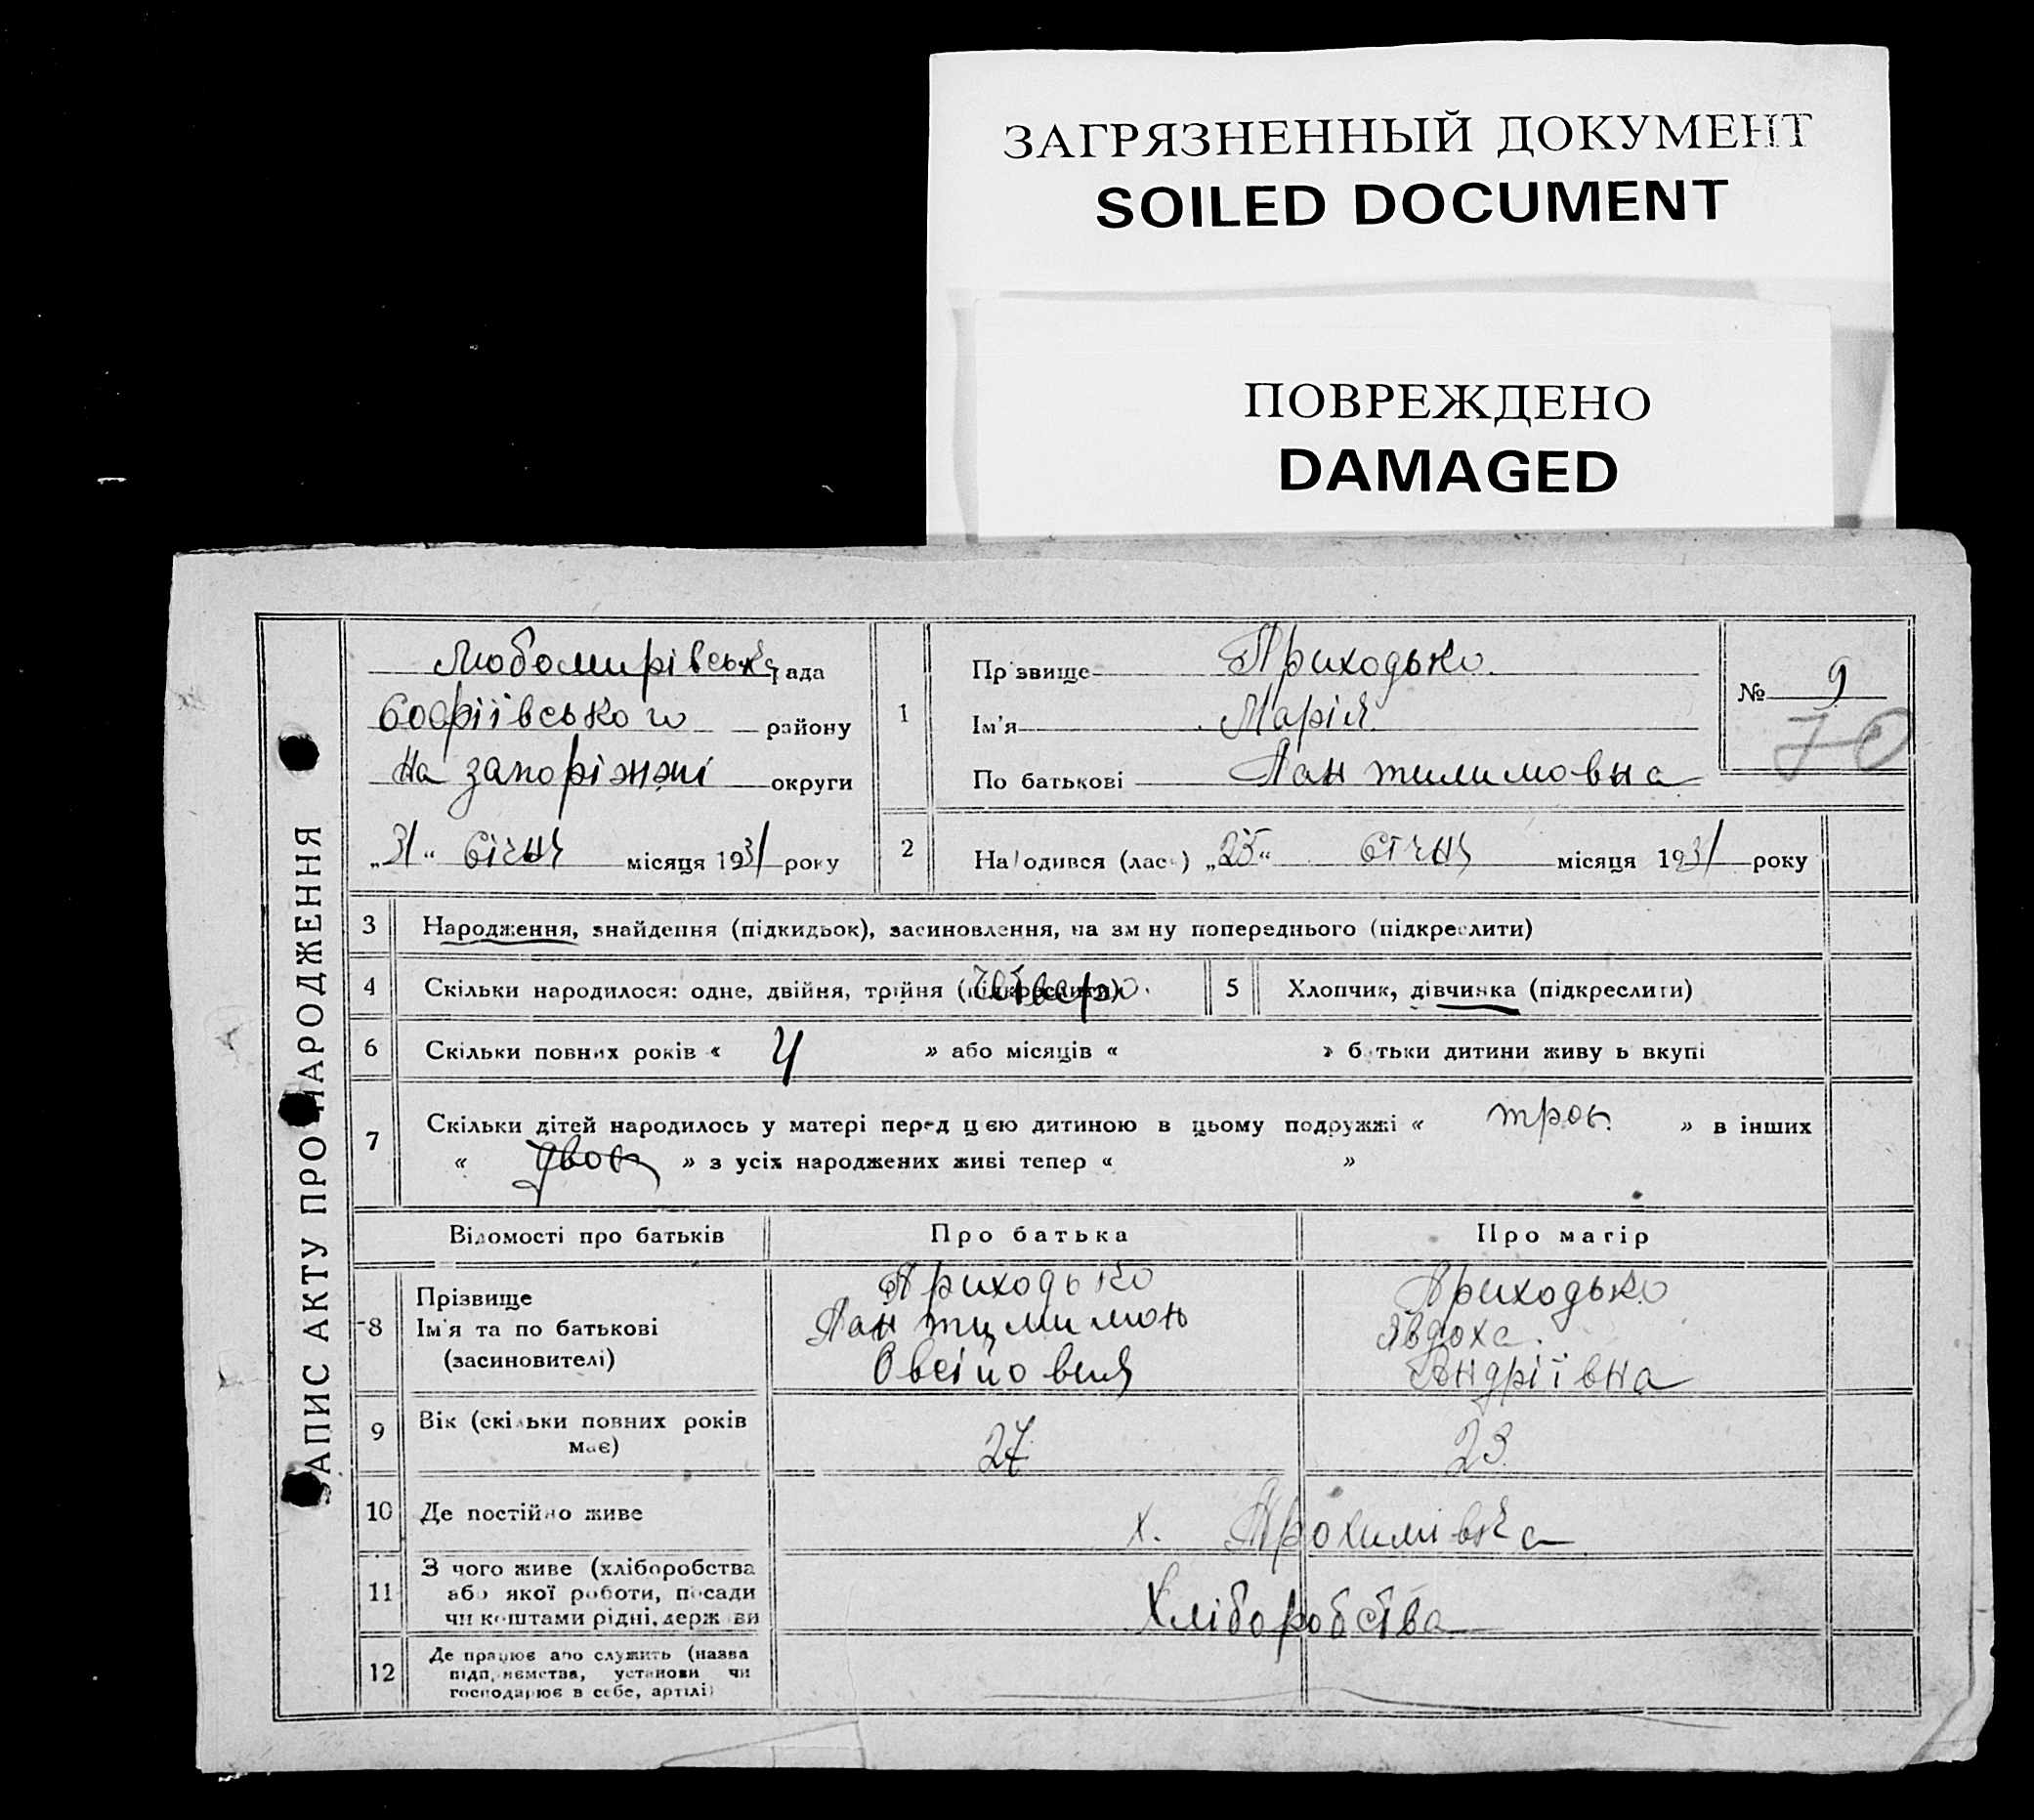 ЗАГРЯЗНЕННЫЙ ДОКУМЕНТ
SOILED DOCUMENT
ПОВРЕЖДЕНО
DAMAGED
ЗАПИС АКТУ ПРО НАРОДЖЕННЯ
Любомирівська рада
Софріївського району
На запоріжжі округи
„31“ січня місяця 1931 року
1
Прізвище Приходько.
Ім'я Марія
По батькові Пантилимовна
№ 9
70
2
Народився (лась) „25“ січня місяця 1931 року
3 Народження, знайдення (підкидьок), засиновлення, на зміну попереднього (підкреслити)
4 Скільки народилося: одне, двійня, трійня (підкреслити) четверо.
5 Хлопчик, дівчинка (підкреслити)
6 Скільки повних років « 4 » або місяців « » батьки дитини живуть вкупі
7 Скільки дітей народилось у матері перед цією дитиною в цьому подружжі « троє » в інших
« двоє » з усіх народжених живі тепер « »
Відомості про батьків Про батька Про матір
8 Прізвище Приходько Приходько
Ім'я та по батькові Пантилимон Явдоха
(засиновителі) Овсійович Андріївна
9 Вік (скільки повних років має) 27 23
10 Де постійно живе х. Трохимівка
11 З чого живе (хліборобства
або якої роботи, посади
чи коштами рідні, держави Хліборобства
12 Де працює або служить (назва
підприємства, установи чи
господарює в себе, артілі)